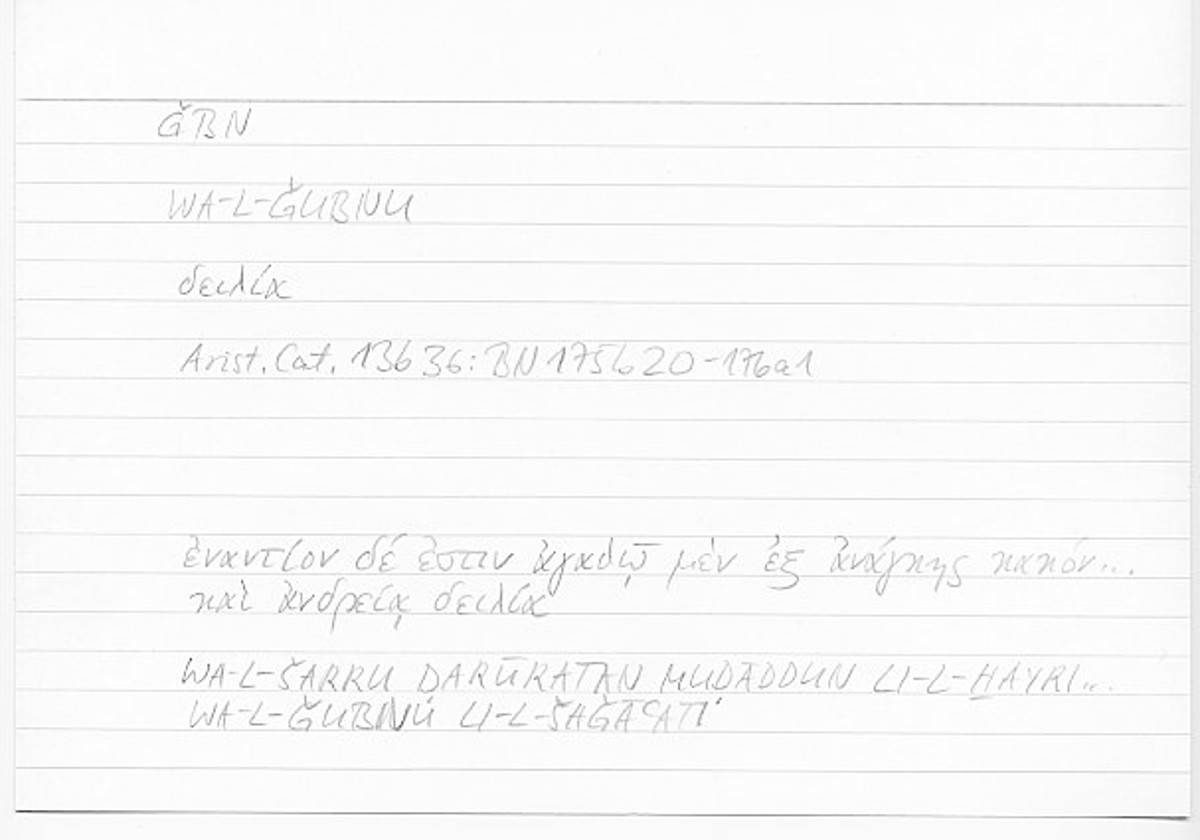 ǦBN
WA-L-ǦUBNU
δειλία
Arist. Cat. 13b36: BN 175b20-176a1
ἐναντίον δέ ἐστιν ἀγαθῷ μὲν ἐξ ἀνάγκης κακόν...
καὶ ἀνδρείᾳ δειλία
WA-L-ŠARRU ḌARŪRATAN MUḌĀDDUN LI-L-ḪAYRI...
WA-L-ǦUBNU LI-L-ŠAǦĀʿATI